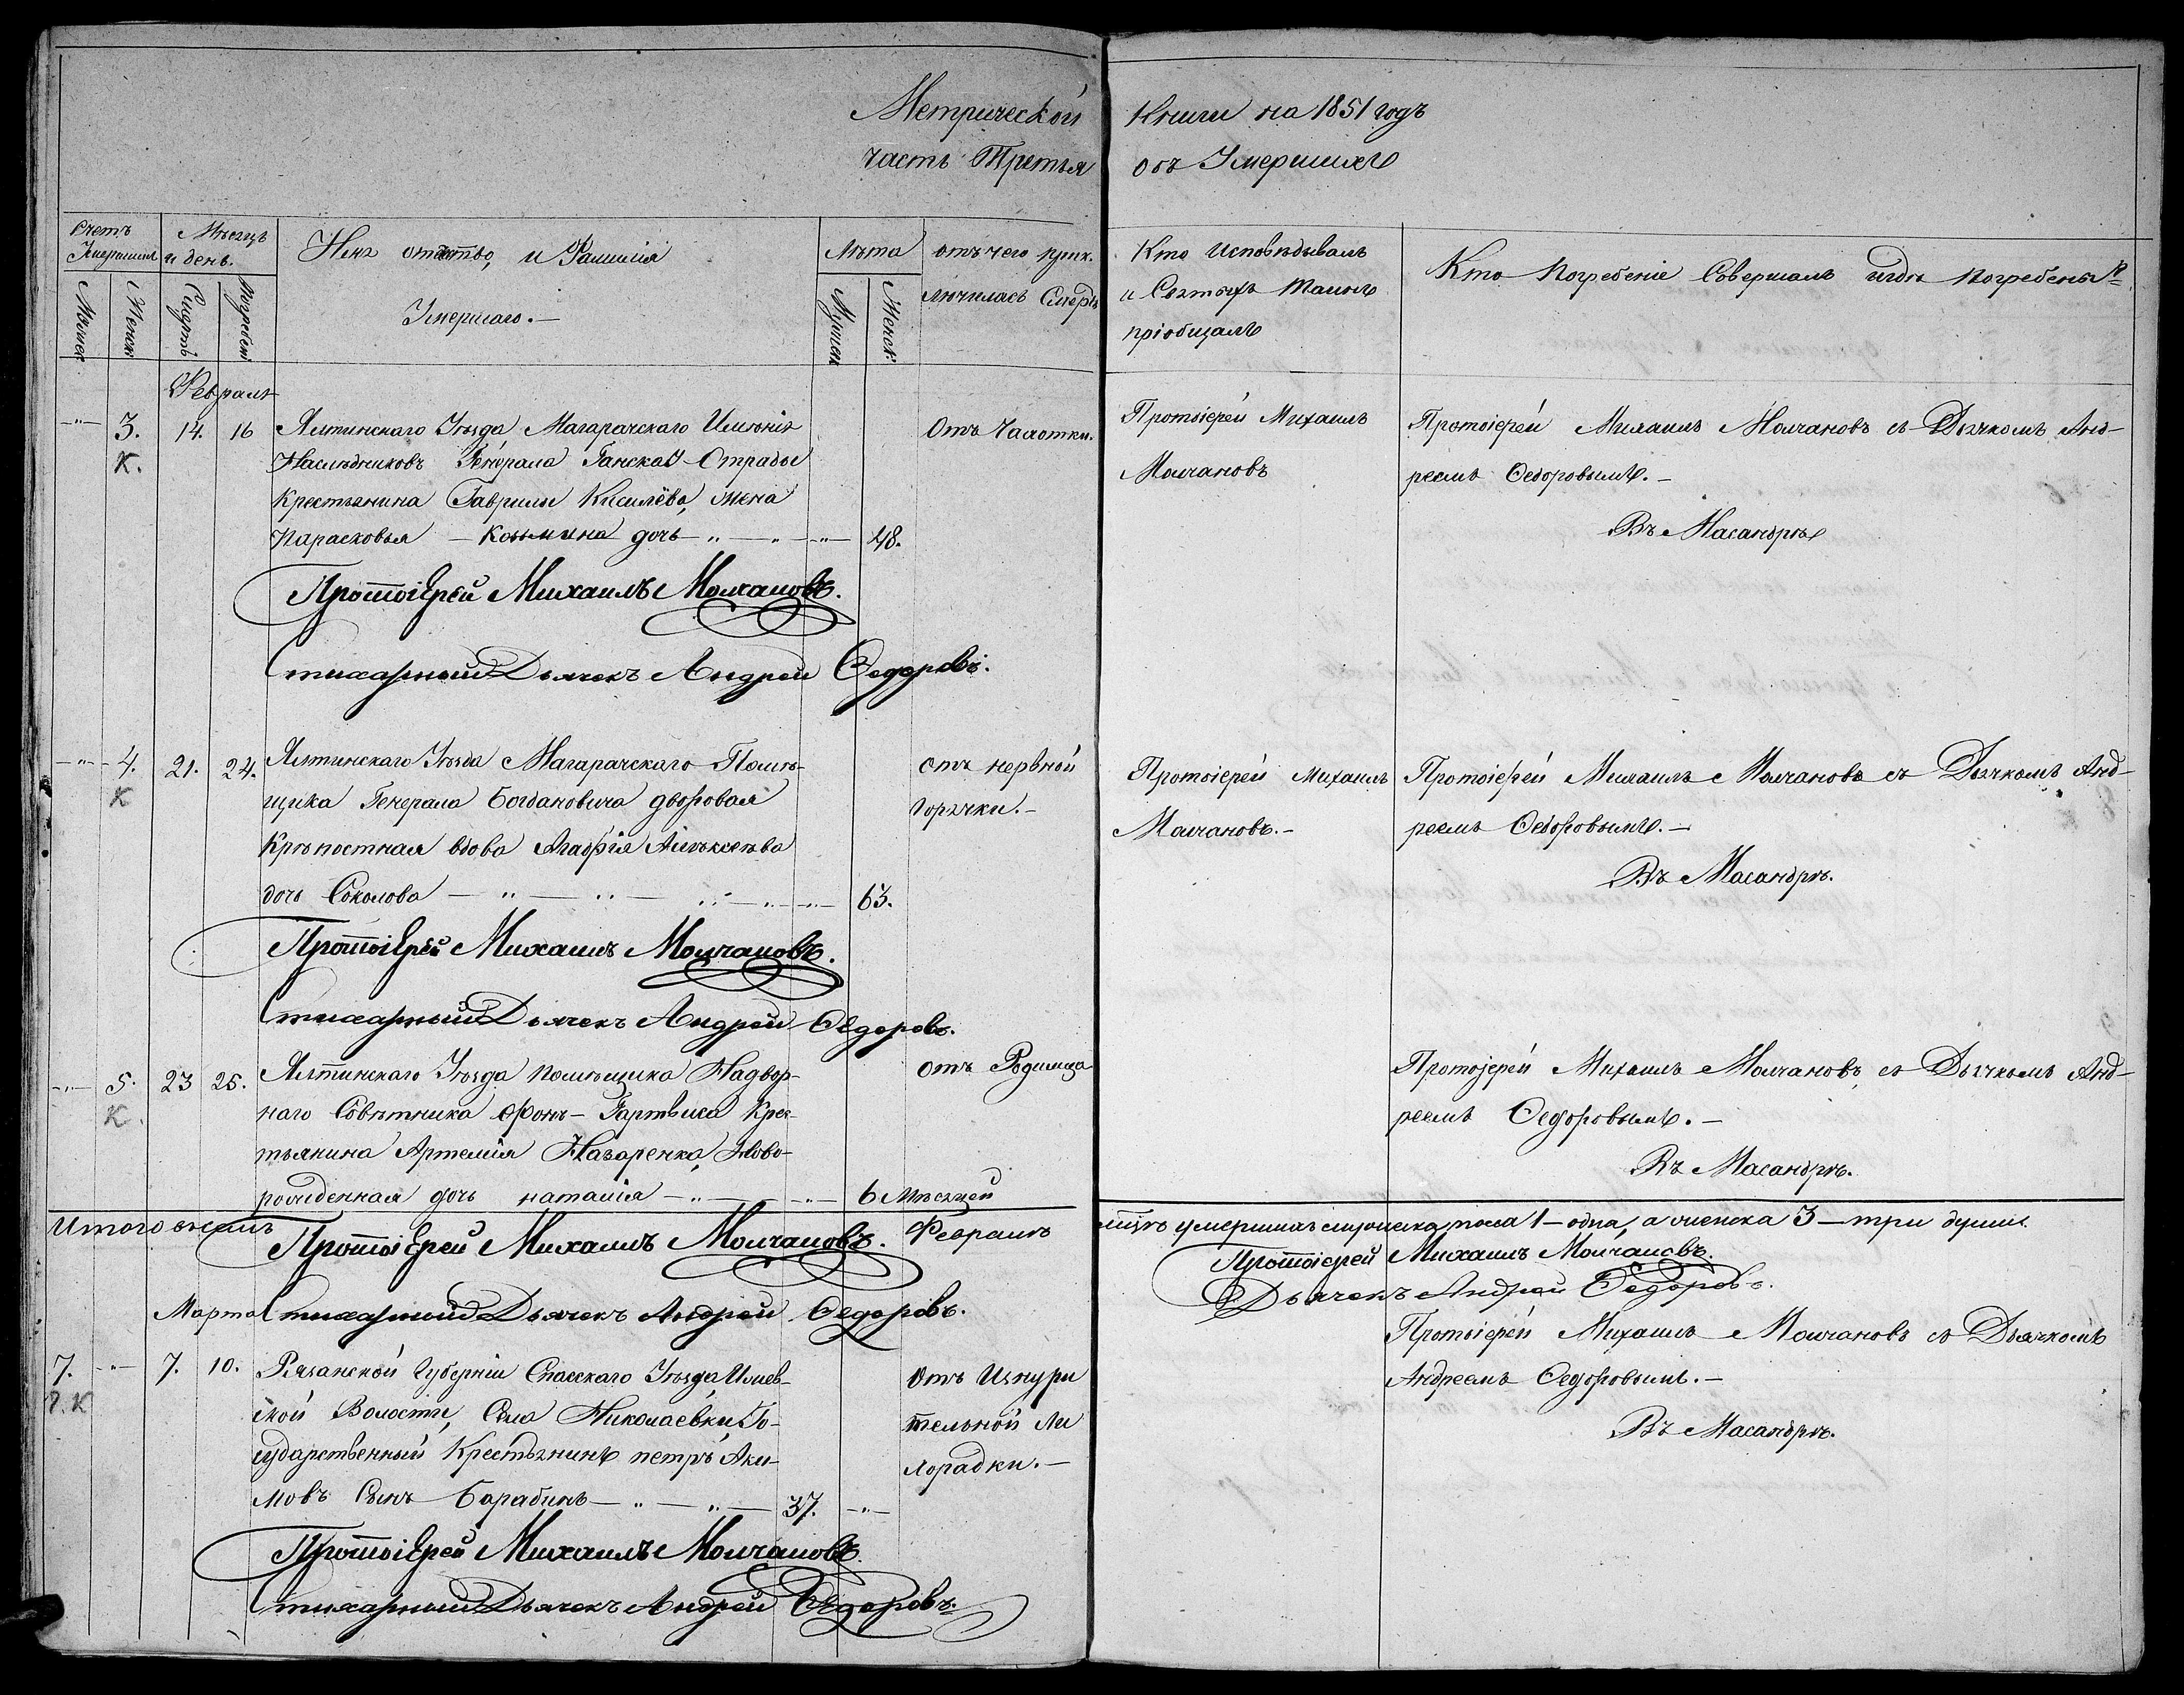 Метрической Книги на 1851 годъ
часть Третья объ Умершихъ
Счетъ Умершихъ
Мужеск.
Женск.
Мѣсяцъ и день.
Смерть
Погребен.
Имя отчество, и Фамилія
Умершаго.—
Лѣта
Мужеск.
Женск.
отъ чего прик.
лючилась Смерть
Кто Исповѣдывалъ
и Святыхъ Таинъ
пріобщалъ
Кто Погребеніе Совершалъ и гдѣ Погребены
Февраль
—"— 3. 14. 16 Ялтинскаго Уѣзда Магарачскаго Имѣнія
К.
Наслѣдниковъ Генерала Ганскау Отрады
Крестьянина Гаврилы Кисилёва, жена
Парасковья — Козьмина дочь — " — " — 48.
Отъ Чахотки.
Протоіерей Михаилъ
Молчановъ
Протоіерей Михаилъ Молчановъ съ Дьячкомъ Анд-
реемъ Ѳедоровымъ.—
Въ Масандрѣ
ПротоіЕрей Михаилъ Молчановъ.
Стихарный Дьячекъ Андрей Ѳедоровъ.
—"— 4. 21. 24. Ялтинскаго Уѣзда Магарачскаго Помѣ-
К
щика Генерала Богдановича дворовая
Крѣпостная вдова Агафія Алѣксѣева
дочь Соколова — " — " — " — 63.
отъ нервной
Горячки.—
Протоіерей Михаилъ
Молчановъ.—
Протоіерей Михаилъ Молчановъ съ Дьячкомъ Анд-
реемъ Ѳедоровымъ.—
Въ Масандрѣ.
ПротоіЕрей Михаилъ Молчановъ.
Стихарный Дьячекъ Андрей Ѳедоровъ.
—"— 5. 23 25. Ялтинскаго Уѣзда помѣщика Надвор-
К.
наго Совѣтника Фонъ-Гартвиса Крес-
тьянина Артемія Назаренка, Ново-
рожденная дочь наталія — " — " — 6 Мѣсяцей
отъ Родимца
Протоіерей Михаилъ Молчановъ съ Дьячкомъ Анд-
реемъ Ѳедоровымъ.—
Въ Масандрѣ.
Итого въ семъ Февралѣ мѣсяцѣ умершихъ мужеска пола 1—одна, а женска 3—три души.
ПротоіЕрей Михаилъ Молчановъ.
Стихарный Дьячекъ Андрей Ѳедоровъ.
Протоіерей Михаилъ Молчановъ.
Дьячекъ Андрей Ѳедоровъ.
Марта
7. —"— 7. 10. Рязанской Губерніи Спасскаго Уѣзда Ижев-
Г. К
ской Волости, Села Николаевки Го-
сударственный Крестьянинъ петръ Аки-
мовъ Сынъ Барабинъ — " — " — 37. —"—
Отъ Изнури
тельной Ли
хорадки.—
Протоіерей Михаилъ Молчановъ съ Дьячкомъ
Андреемъ Ѳедоровымъ.—
Въ Масандрѣ.
ПротоіЕрей Михаилъ Молчановъ.
Стихарный Дьячекъ Андрей Ѳедоровъ.